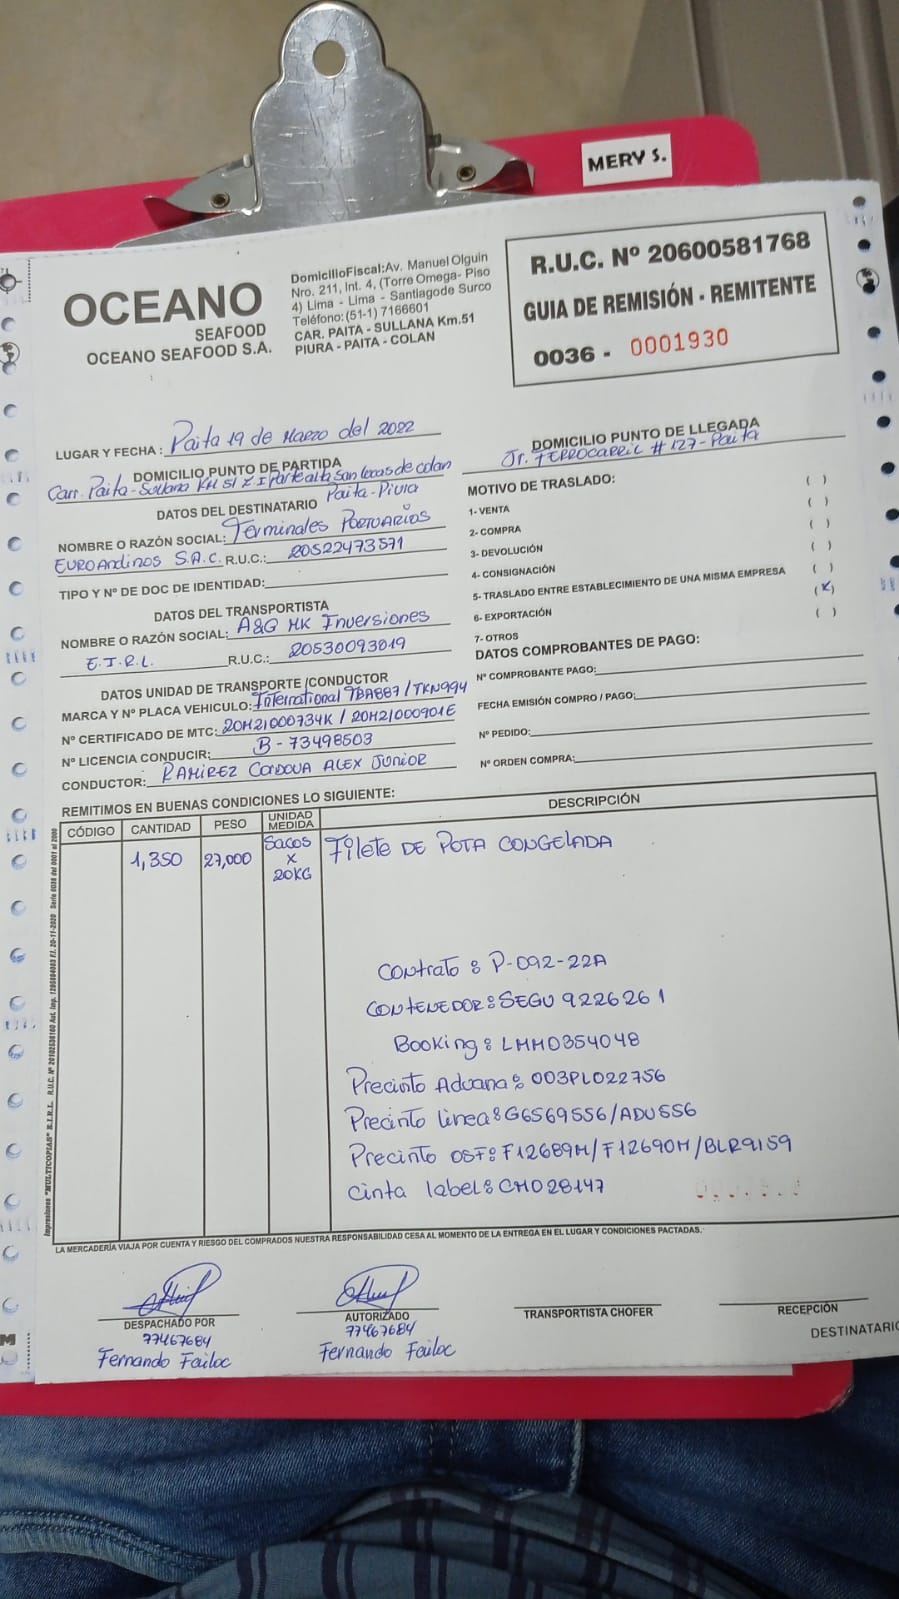 MERY S.
OCEANO
SEAFOOD
OCEANO SEAFOOD S.A.
DomicilioFiscal:Av. Manuel Olguin
Nro. 211, Int. 4, (Torre Omega- Piso
4) Lima - Lima - Santiagode Surco
Teléfono:(51-1) 7166601
CAR. PAITA - SULLANA Km.51
PIURA - PAITA - COLAN
R.U.C. Nº 20600581768
GUIA DE REMISIÓN - REMITENTE
0036 - 0001930
LUGAR Y FECHA : Paita 19 de Marzo del 2022
DOMICILIO PUNTO DE PARTIDA
Carr. Paita-Sullana KM 51 Z I Parte alta San Lucas de Colan
Paita-Piura
DOMICILIO PUNTO DE LLEGADA
Jr. FERROCARRIL # 127-Paita
DATOS DEL DESTINATARIO
NOMBRE O RAZÓN SOCIAL: Terminales PORTUARIOS
EUROAndinos S.A.C. R.U.C.: 20522473571
TIPO Y Nº DE DOC DE IDENTIDAD:
DATOS DEL TRANSPORTISTA
NOMBRE O RAZÓN SOCIAL: A&G MK Inversiones
E.I.R.L. R.U.C.: 20530093019
DATOS UNIDAD DE TRANSPORTE /CONDUCTOR
MARCA Y Nº PLACA VEHICULO: International TBA887/TKN994
Nº CERTIFICADO DE MTC: 20M21000734K / 20M21000901E
Nº LICENCIA CONDUCIR: B-73498503
CONDUCTOR: RAMIREZ CORDOVA ALEX JUNIOR
MOTIVO DE TRASLADO:
1- VENTA ( )
2- COMPRA ( )
3- DEVOLUCIÓN ( )
4- CONSIGNACIÓN ( )
5- TRASLADO ENTRE ESTABLECIMIENTO DE UNA MISMA EMPRESA ( )
6- EXPORTACIÓN (x)
7- OTROS ( )
DATOS COMPROBANTES DE PAGO:
Nº COMPROBANTE PAGO:
FECHA EMISIÓN COMPRO / PAGO:
Nº PEDIDO:
Nº ORDEN COMPRA:
REMITIMOS EN BUENAS CONDICIONES LO SIGUIENTE:
CÓDIGO CANTIDAD PESO UNIDAD MEDIDA DESCRIPCIÓN
1,350 27,000 Sacos x 20KG Filete DE POTA CONGELADA
Contrato: P-092-22A
CONTENEDOR: SEGU 9226261
Booking: LMM0354048
Precinto Aduana: 003PL022756
Precinto linea: G6569556/ADU556
Precinto OSF: F12689M/F12690M/BLR9159
Cinta label: CM028147
Impresiones "MULTICOPIAS" E.I.R.L.
LA MERCADERÍA VIAJA POR CUENTA Y RIESGO DEL COMPRADOS NUESTRA RESPONSABILIDAD CESA AL MOMENTO DE LA ENTREGA EN EL LUGAR Y CONDICIONES PACTADAS.
DESPACHADO POR
77467684
Fernando Failoc
AUTORIZADO
77467684
Fernando Failoc
TRANSPORTISTA CHOFER
RECEPCIÓN
DESTINATARIO